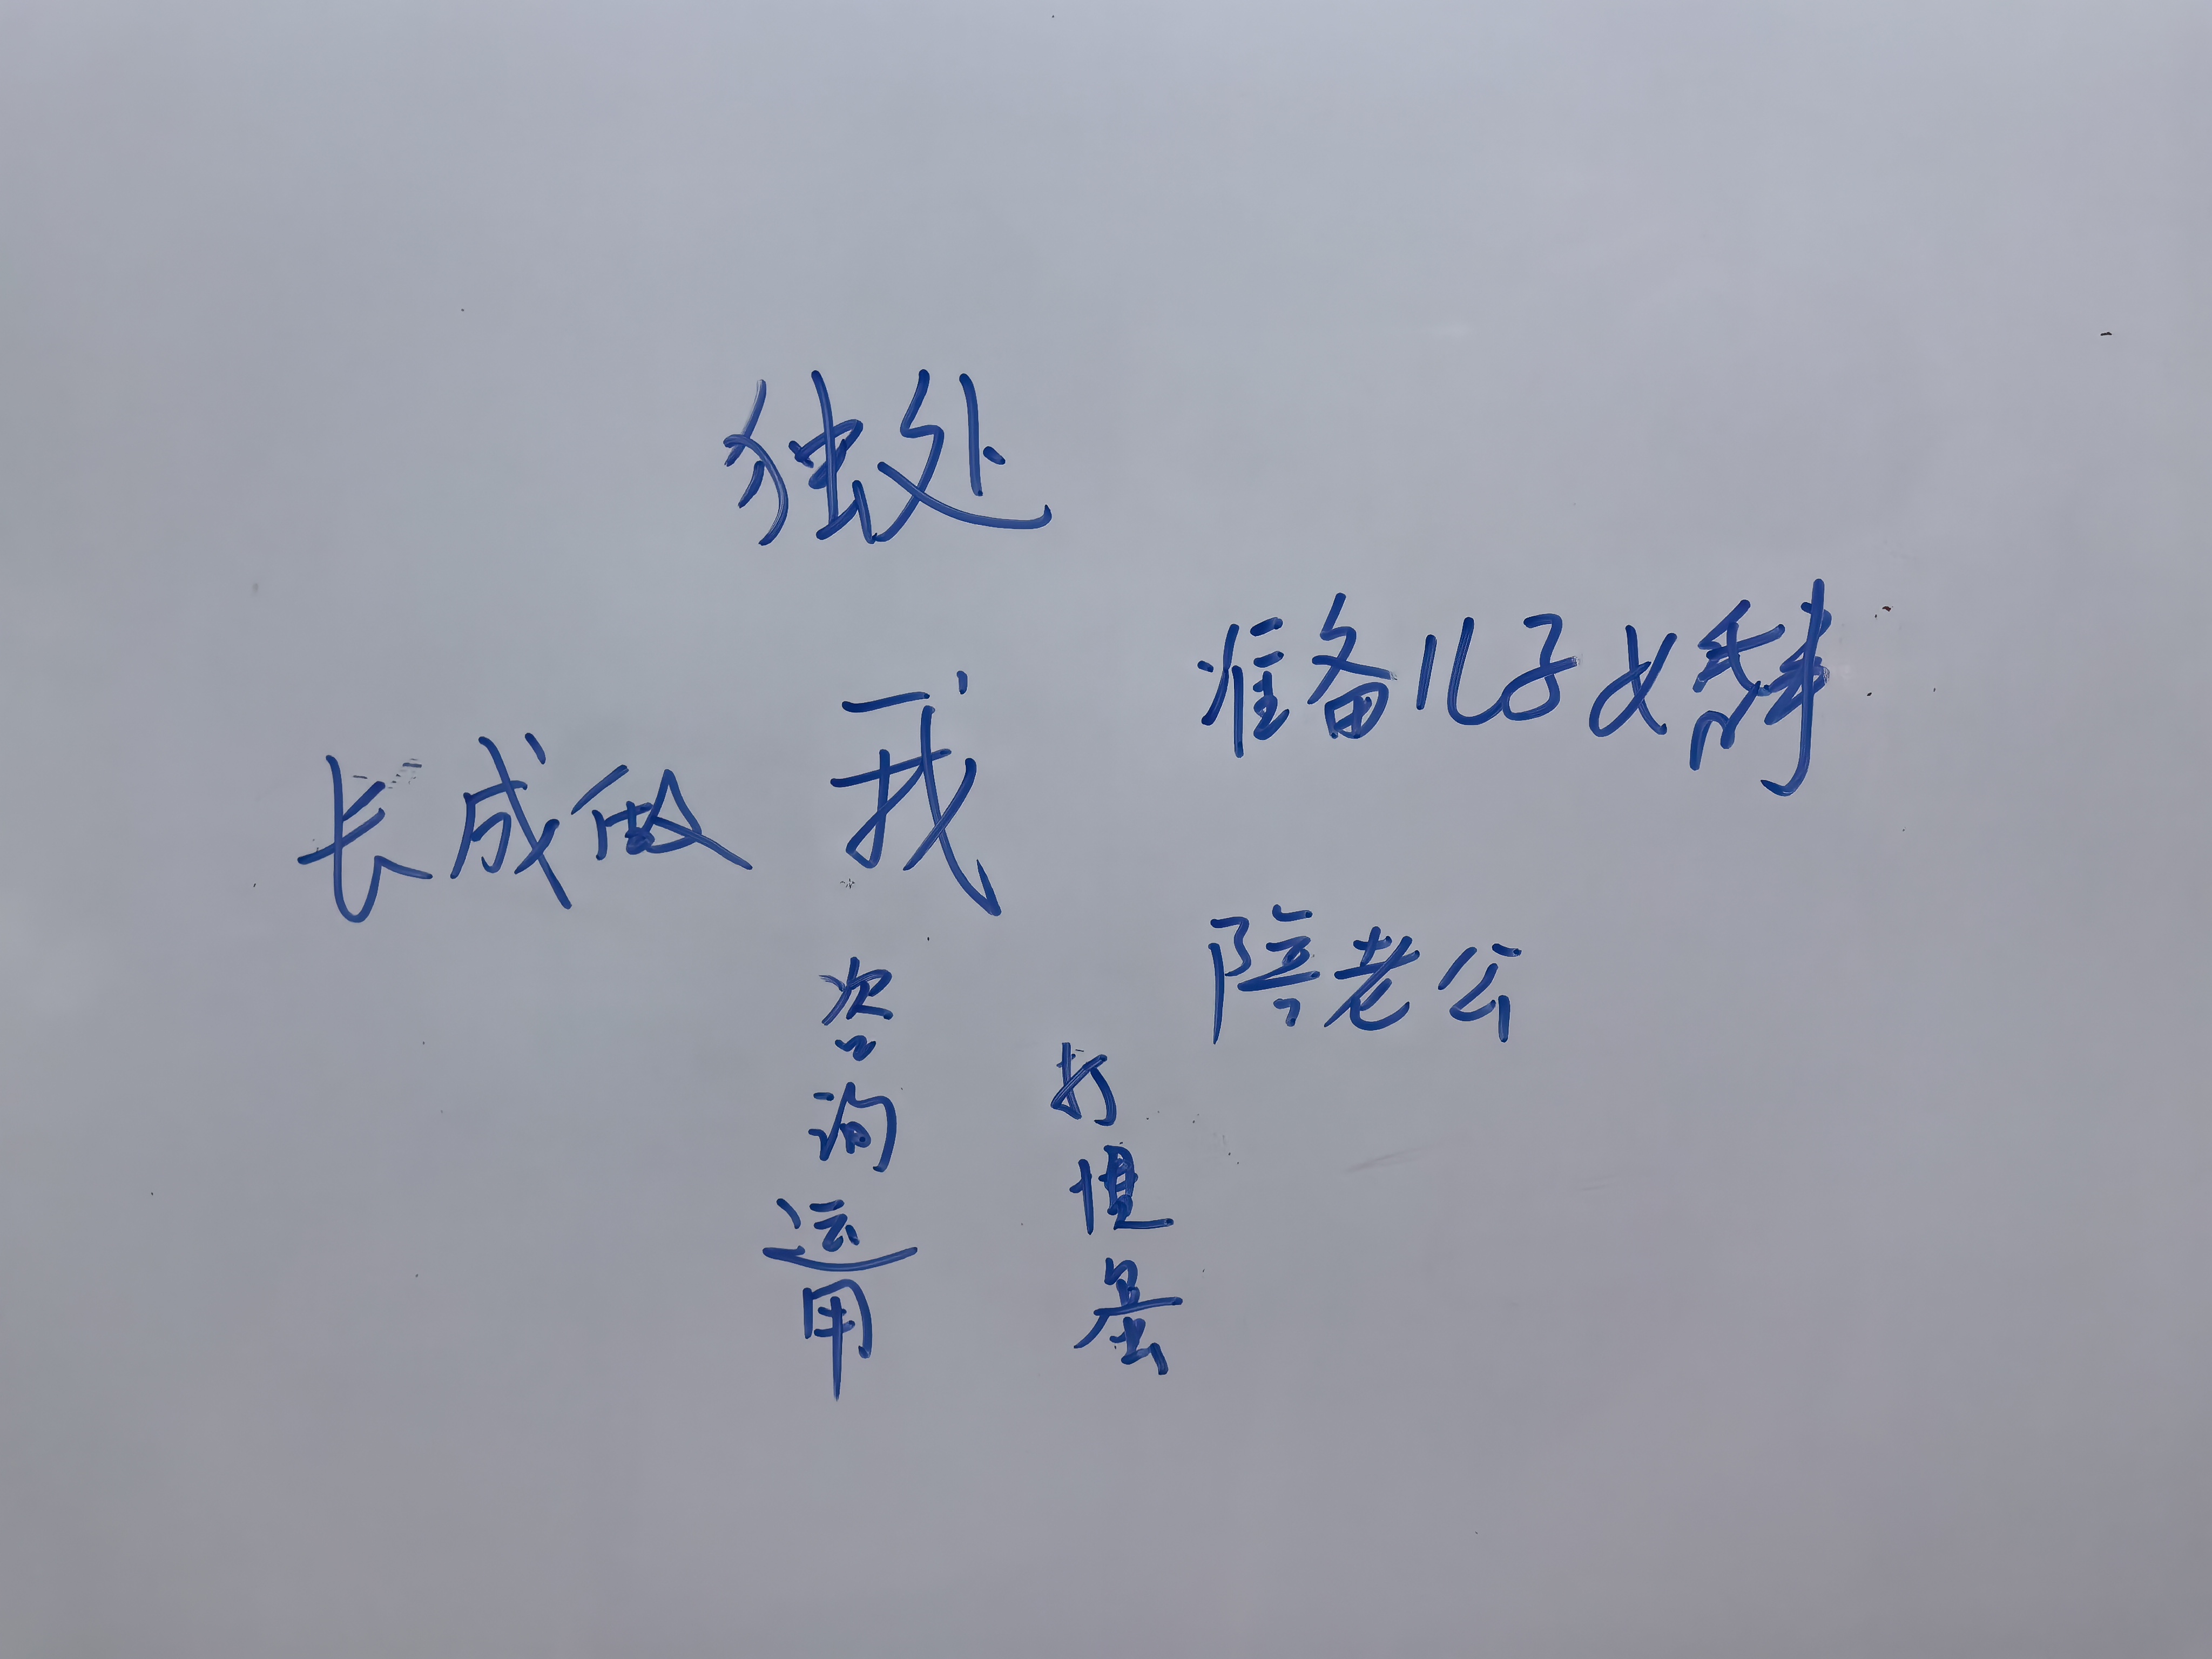 独处
准备儿子女
我
长成做
陪老公
咨询运用
打理